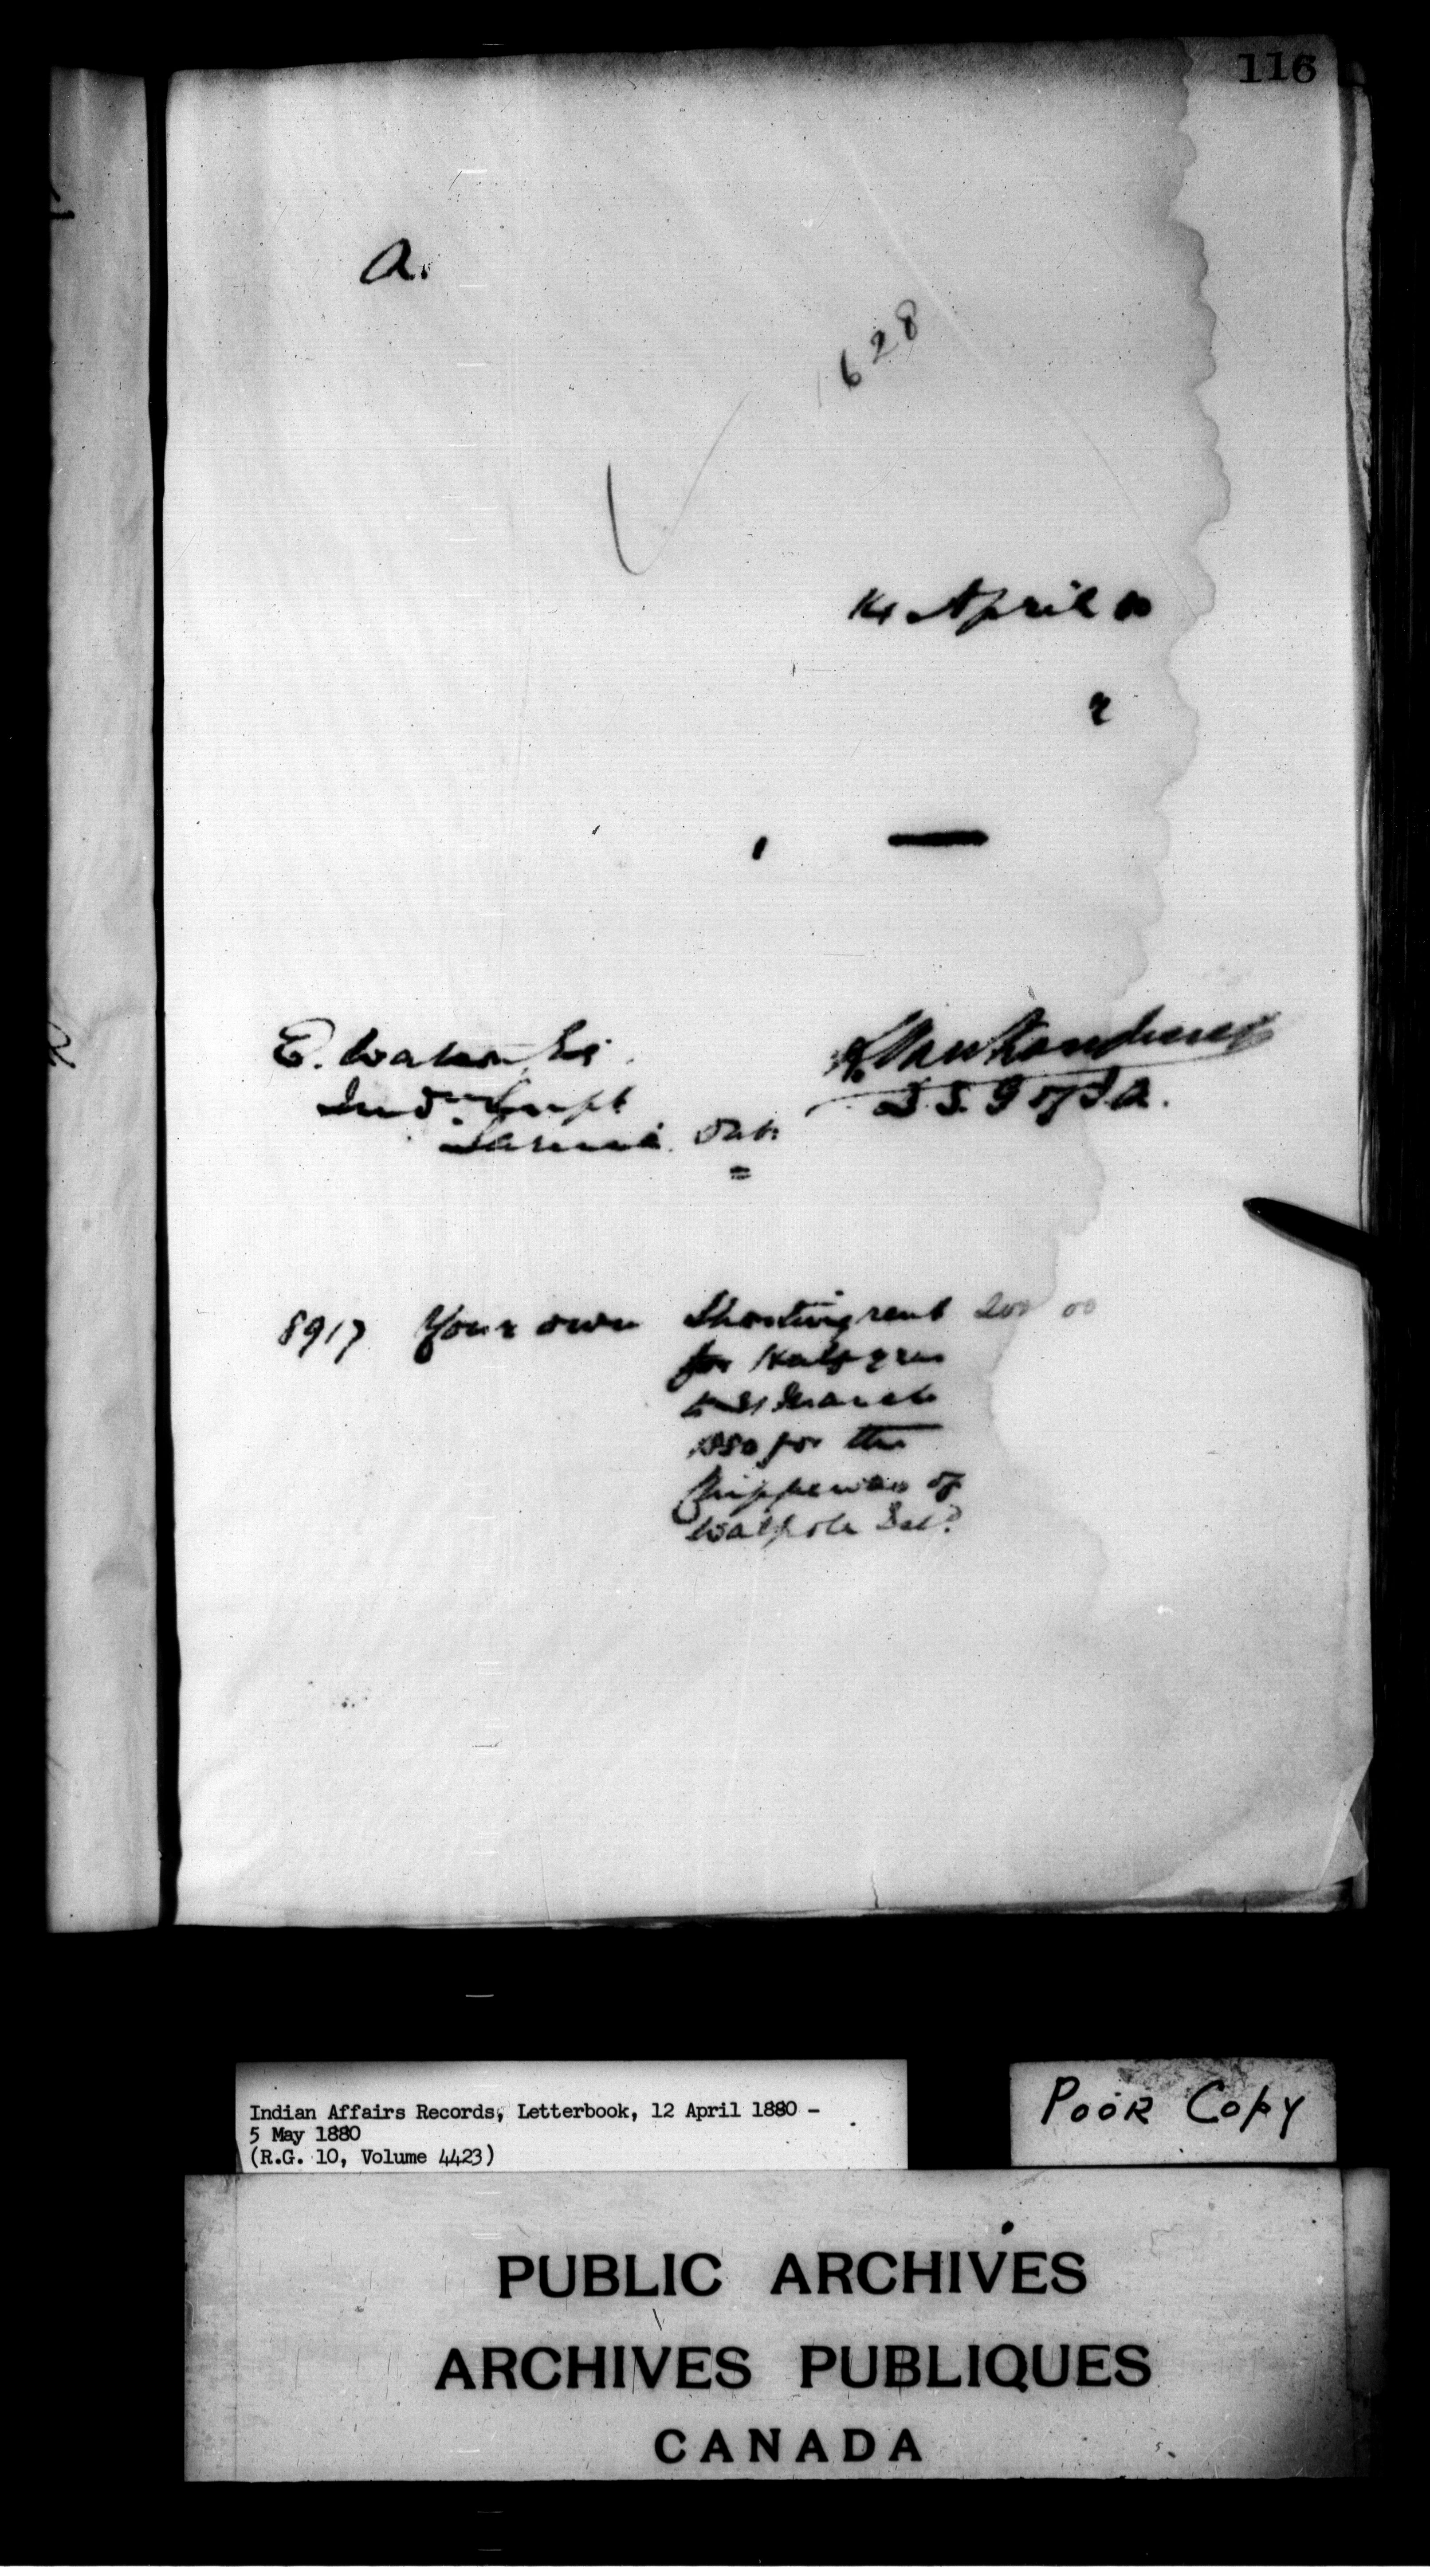 116
A.
1628
14 April 80
E. Watson, Es
Indn Supt
Sarnia. Ont.
L. Vankoughnet
D. S. G of I. A.
8917 Your own Shooting rent 200 00
for Half year
to 31 March
1880 for the
Chippewas of
Walpole Isld
Indian Affairs Records, Letterbook, 12 April 1880 -
5 May 1880
(R.G. 10, Volume 4423)
POOR COPY
PUBLIC ARCHIVES
ARCHIVES PUBLIQUES
CANADA